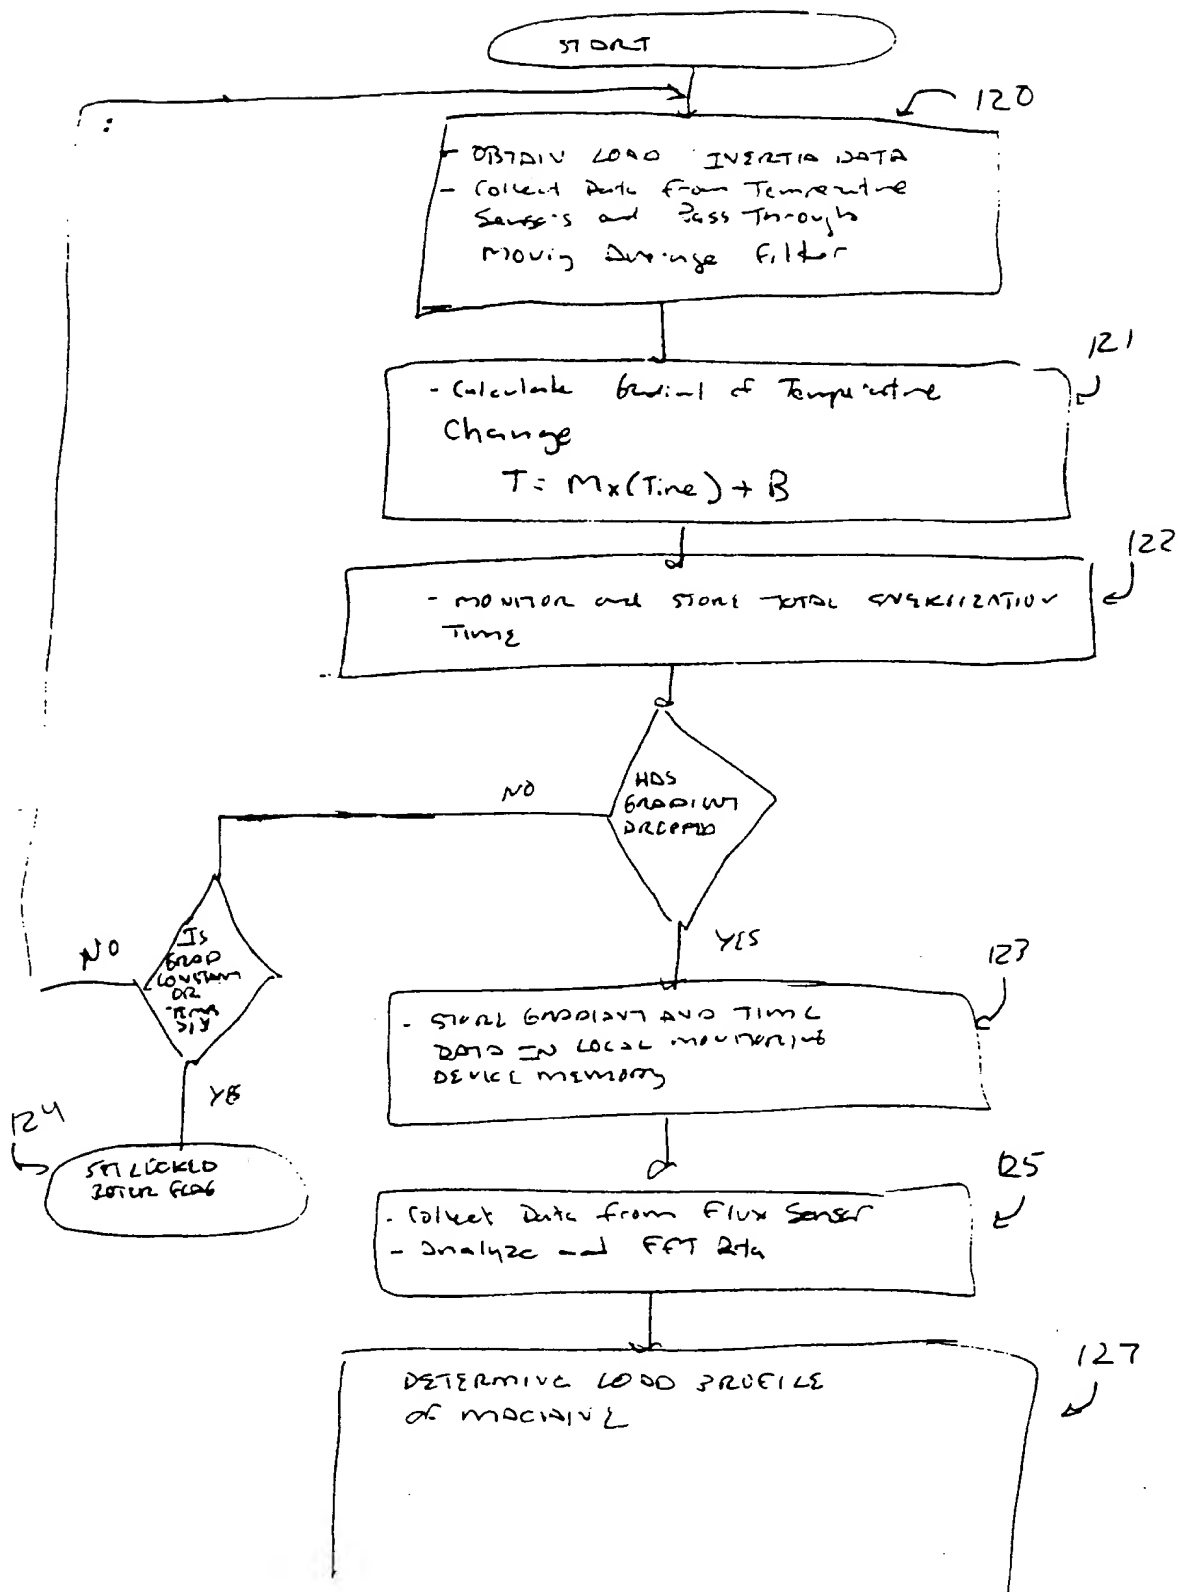 START
120
- OBTAIN LOAD INERTIA DATA
- Collect Data from Temperature
Sensors and Pass Through
Moving Average Filter
121
- Calculate Gradient of Temperature
Change
T = Mx(Time) + B
122
- MONITOR and STORE TOTAL ENERGIZATION
TIME
HAS
GRADIENT
DROPPED
NO
YES
IS
GRAD
CONSTANT
OR
NO
YES
124
SET LOCKED
ROTOR FLAG
123
- STORE GRADIENT AND TIME
DATA IN LOCAL MONITORING
DEVICE MEMORY
125
- Collect Data from Flux Sensor
- Analyze and FFT Data
127
DETERMINE LOAD PROFILE
OF MACHINE